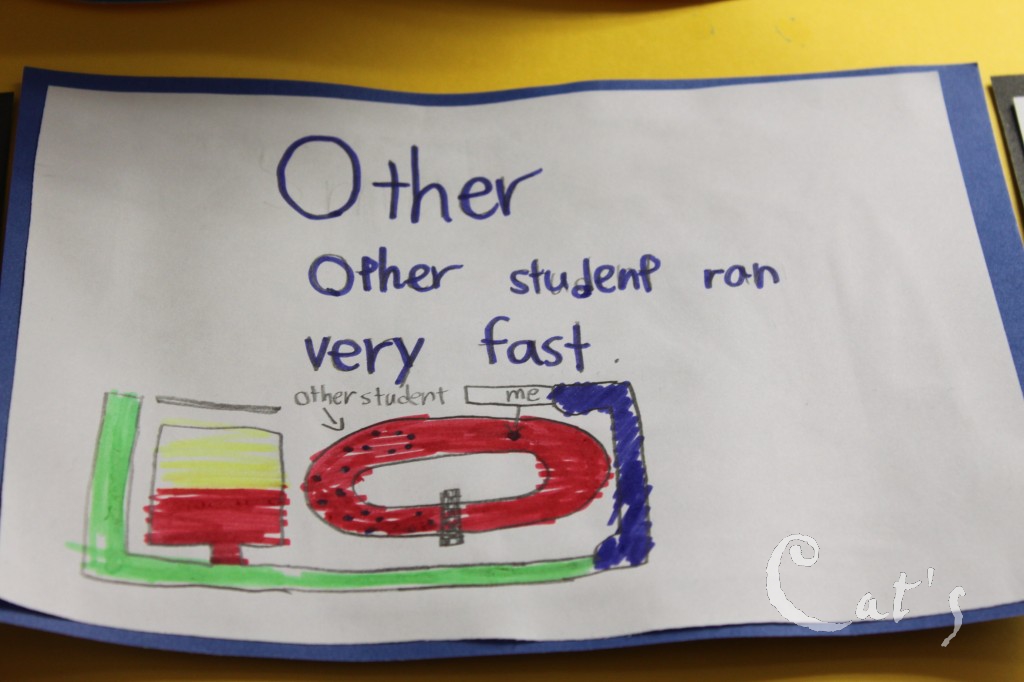 Other
Other student ran
very fast.
other student
me
Cat's